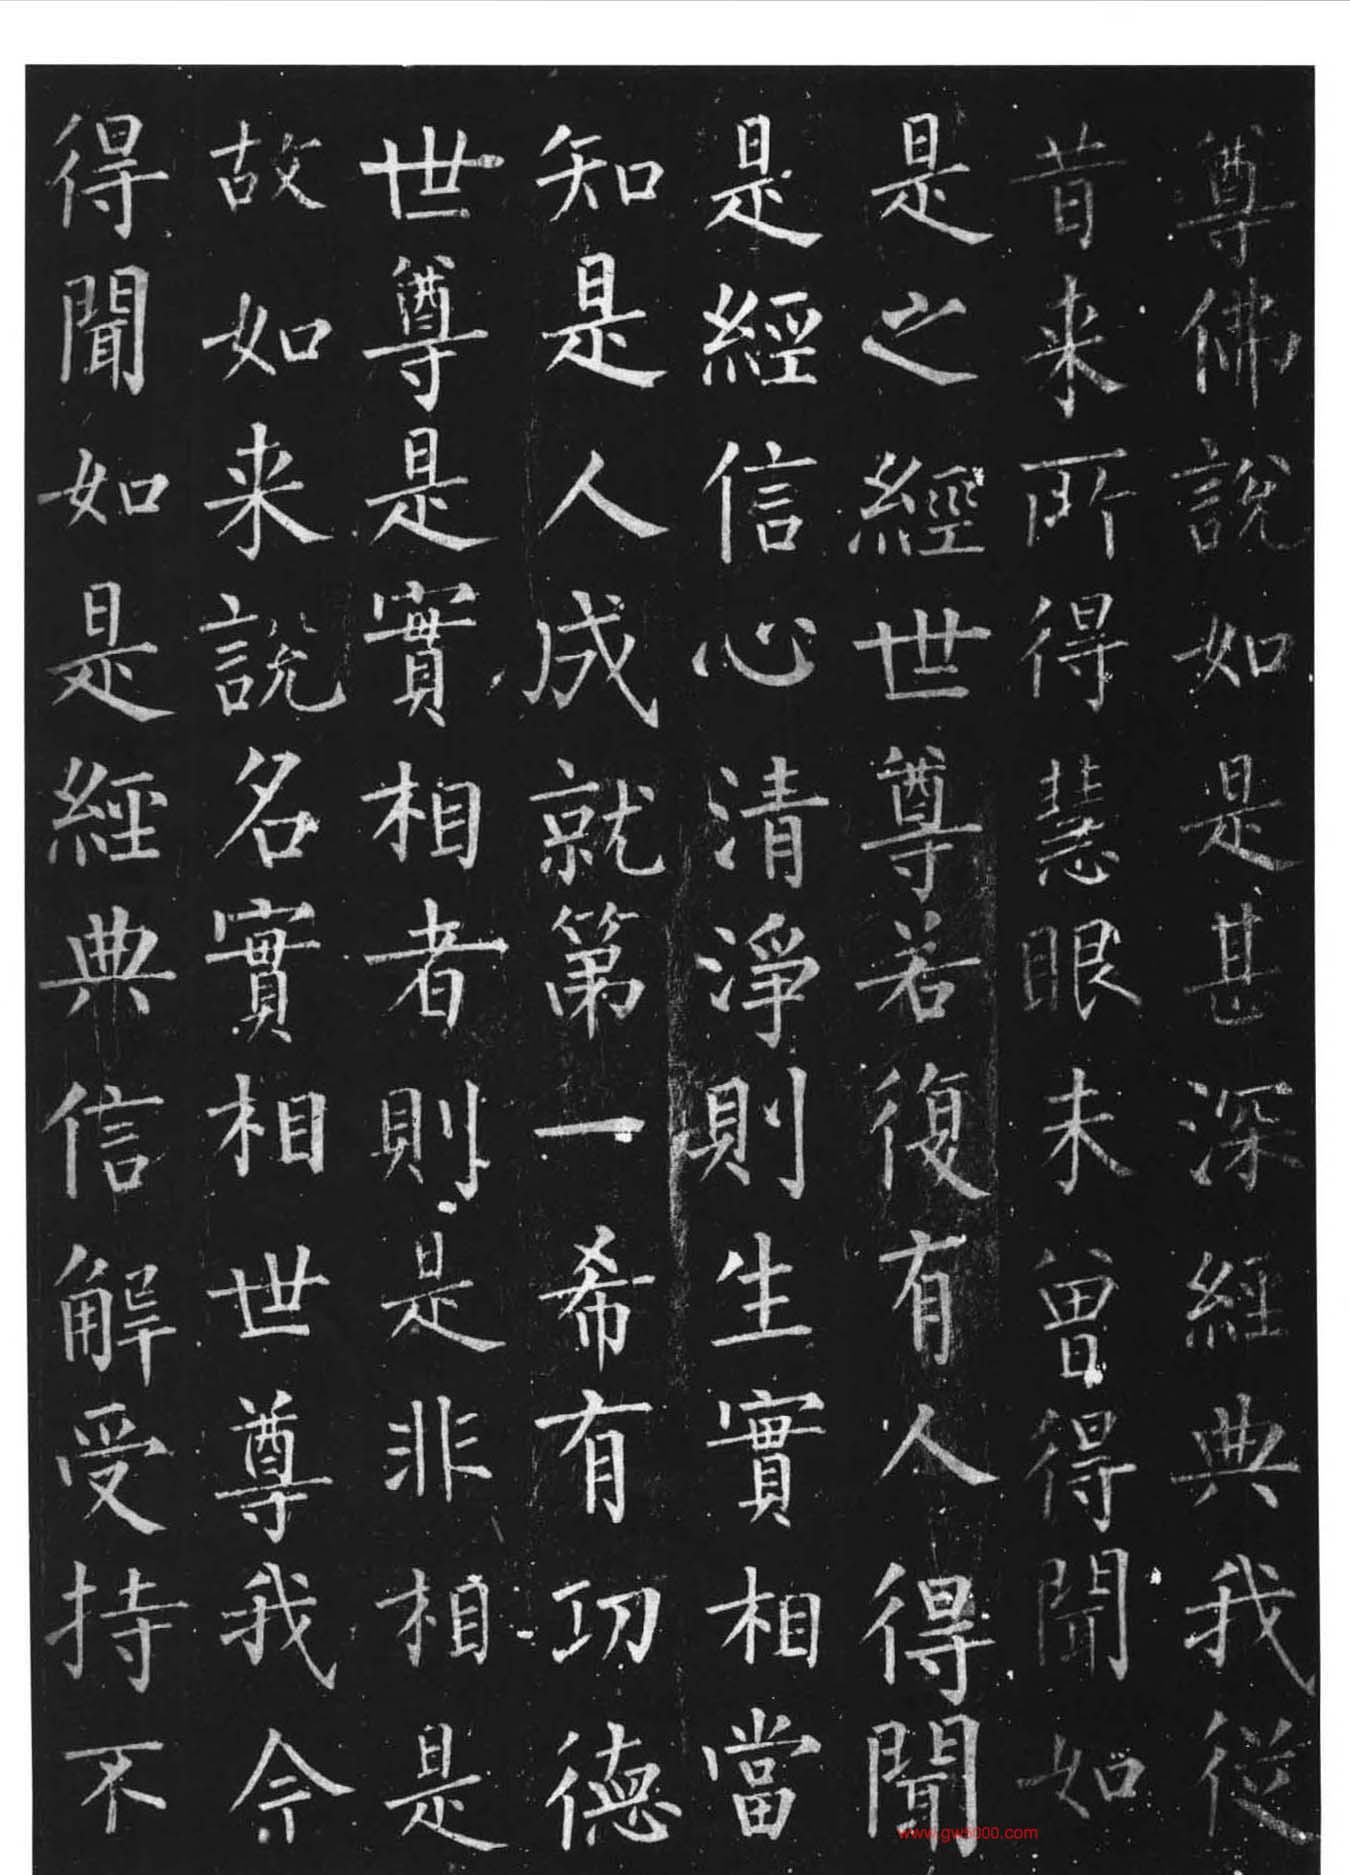 尊佛說如是甚深經典我從
昔来所得慧眼未曾得聞如
是之經世尊若復有人得聞
是經信心清淨則生實相當
知是人成就第一希有功德
世尊是實相者則是非相是
故如来說名實相世尊我今
得聞如是經典信解受持不
www.gw5000.com